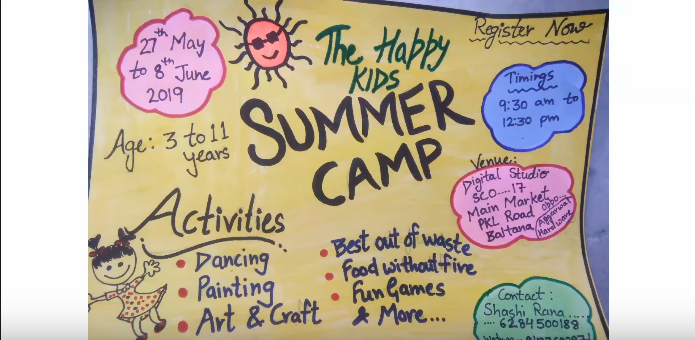 27th May
to 8th June
2019
The Happy
KIDS
SUMMER
CAMP
Register Now
Timings
9:30 am to
12:30 pm
Age: 3 to 11
years
Venue:
Digital Studio
SCO....17
Main Market
PKL Road
Baltana
Opbo...
Aggarwal
Hardware
Activities
• Dancing
• Painting
• Art & Craft
• Best out of waste
• Food without fire
• Fun Games
& More...
Contact:
Shashi Rana.....
.... 6284500188